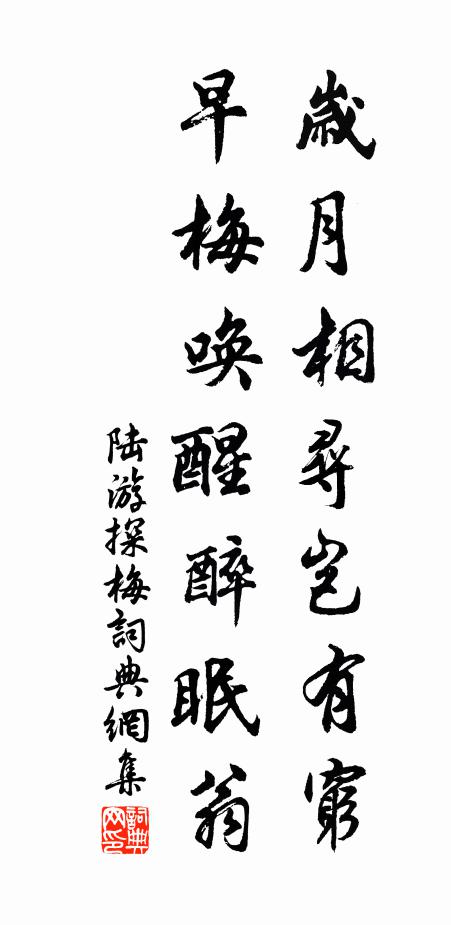 歲月相尋豈有窮
早梅喚醒醉眠翁
陸游探梅詞典網集
詞典網印